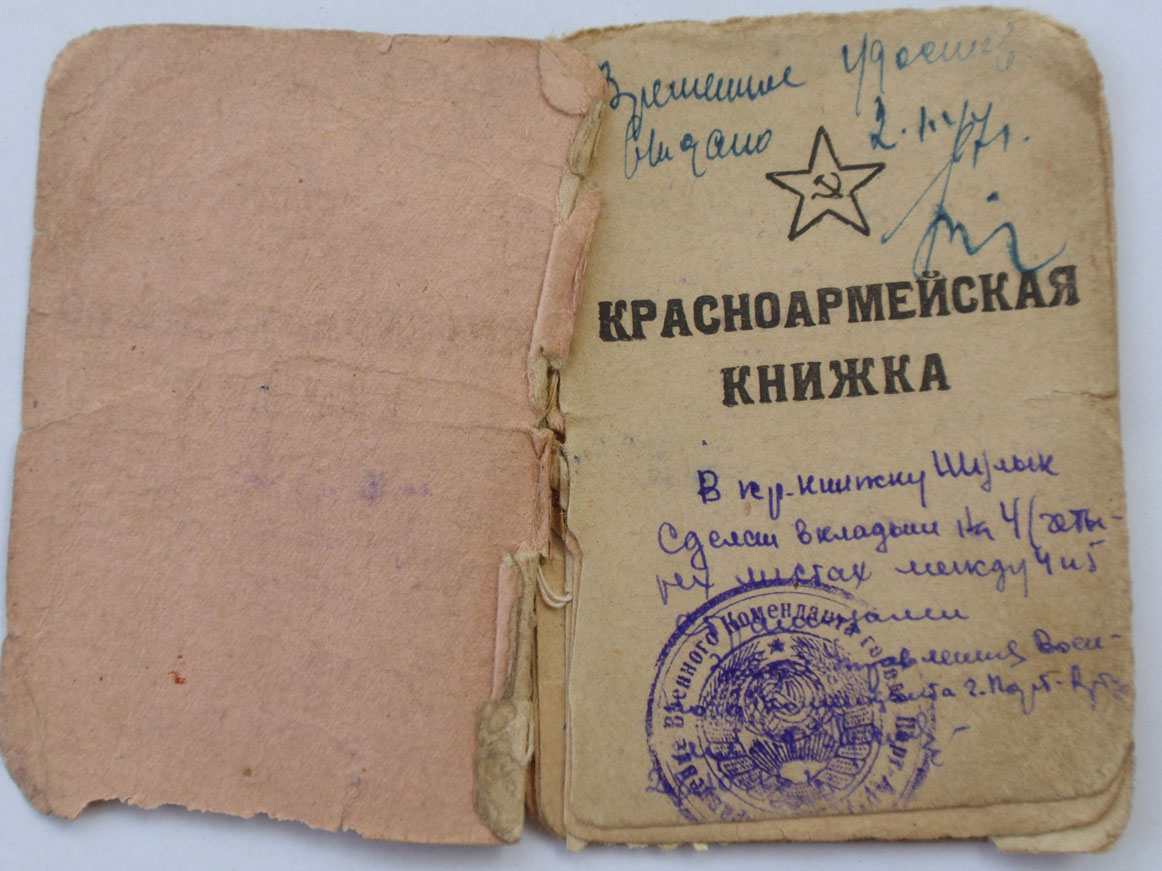 Временное удост.
Выдано 2.
КРАСНОАРМЕЙСКАЯ
КНИЖКА
В кр. книжку Шулык
сделан вкладыш на 4 (четы-
рех листах между 4 и 5
страницами
управления Воен-
коменданта г. Порт-Артур
Военного Коменданта гор. Порт-Ар